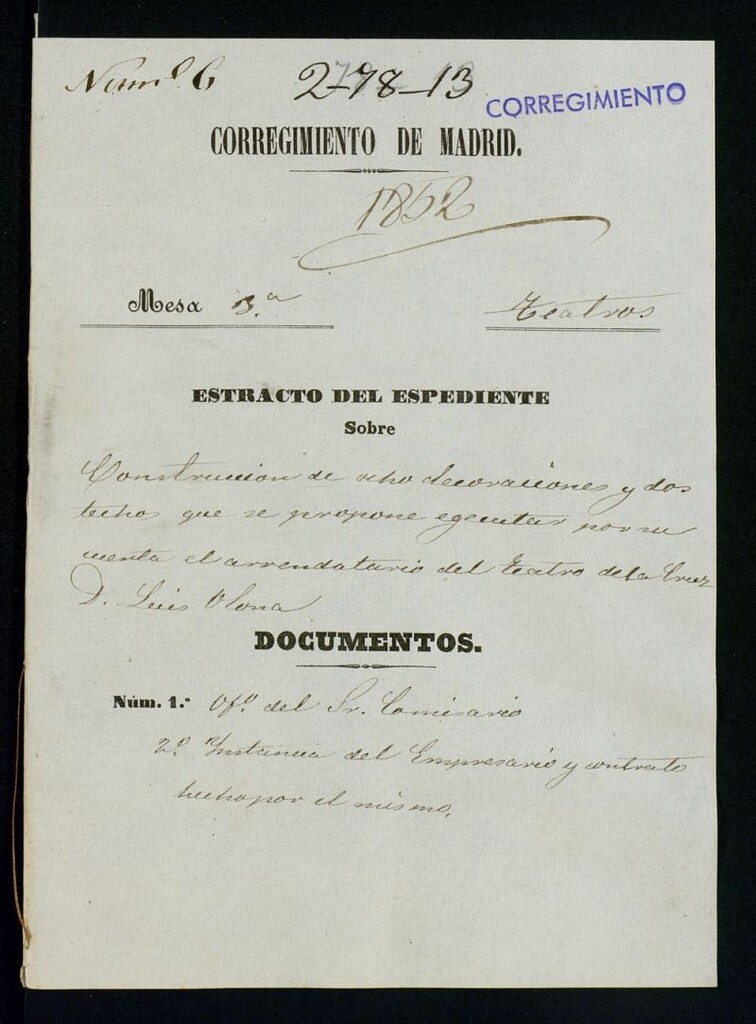 Num.º 6 2-78-13 CORREGIMIENTO
CORREGIMIENTO DE MADRID.
1852
Mesa 3.ª Teatros
ESTRACTO DEL ESPEDIENTE
Sobre
Construccion de ocho decoraciones y dos
techos que se propone egecutar por su
cuenta el arrendatario del teatro de la Cruz
D. Luis Olona
DOCUMENTOS.
Núm. 1.º Of.º del Sr. Comisario
2.º Instancia del Empresario y contrato
hecho por el mismo.